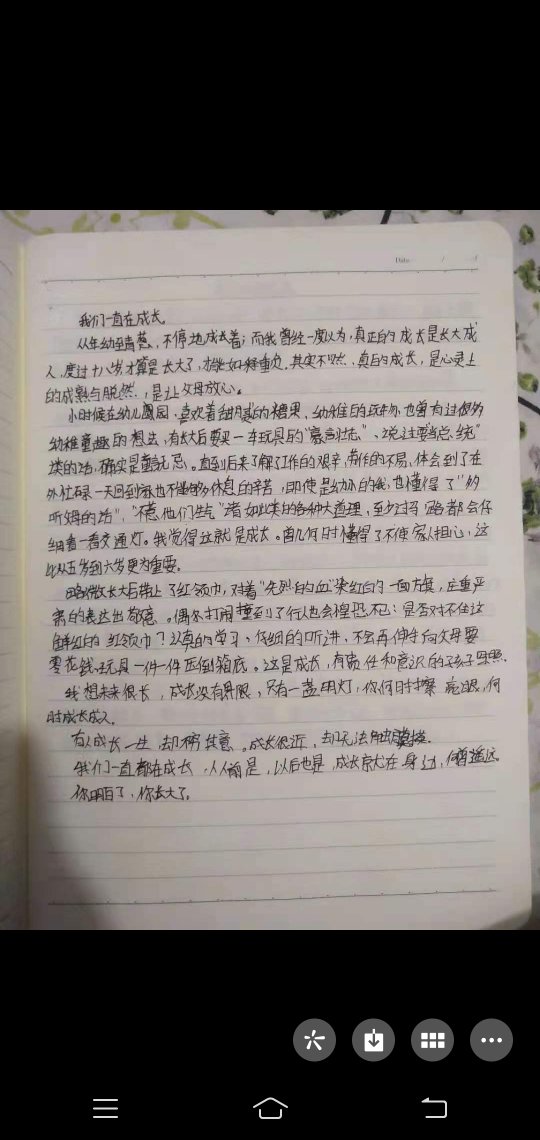 Date
我们一直在成长
从年幼至青葱，不停地成长着；而我曾经一度以为，真正的成长是长大成
人，度过十八岁才算是长大了，才能如释重负，其实不然，真正的成长，是心灵上
的成熟与脱然，是让父母放心。
小时候在幼儿园，喜欢着甜腻的糖果、幼稚的玩物，也曾有过很多
幼稚童趣的想法，有长大后要买一车玩具的“豪言壮志”、说过要当总统”
类的话，确实是童言无忌。直到后来了解了工作的艰辛，劳作的不易，体会到了在
外忙碌一天回到家也不能够多休息的辛苦，即使是幼小的我，也懂得了“
听妈妈的话”，“不惹他们生气”诸如此类的各种大道理，至少过马路都会仔
细看一看交通灯。我觉得这就是成长。曾几何时懂得了不使家人担心，这
比从五岁到六岁更为重要。
略微长大后带上了红领巾，对着“先烈的血”染红的一面方旗，庄重严
肃的表达出敬意。偶尔打闹撞到了行人也会惶恐不已：是否对不住这
鲜红的红领巾？认真的学习、仔细的听讲，不会再伸手向父母要
零花钱，玩具一件一件压倒箱底。这是成长，有责任和意识的孩子
我想未来很长，成长没有界限，只有一盏明灯，你何时擦亮眼，何
时成长成人。
有人成长一生，却不明其意。成长很近，却无法触碰
我们一直都在成长，从前是，以后也是，成长就在身边，何曾遥远。
你明白了，你长大了。